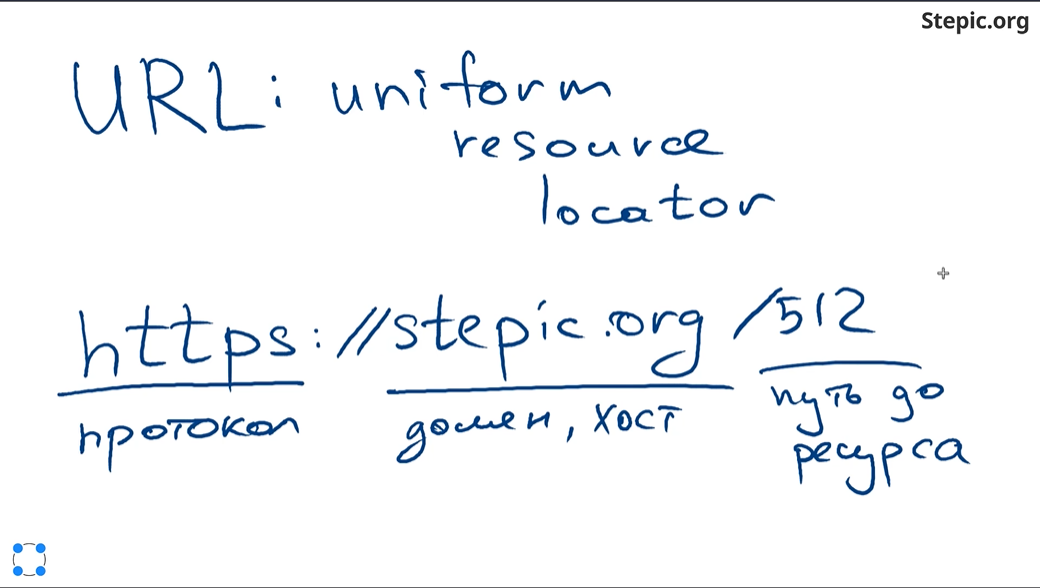 Stepic.org
URL: uniform
resource
locator
https://stepic.org/512
протокол домен, хост путь до
ресурса